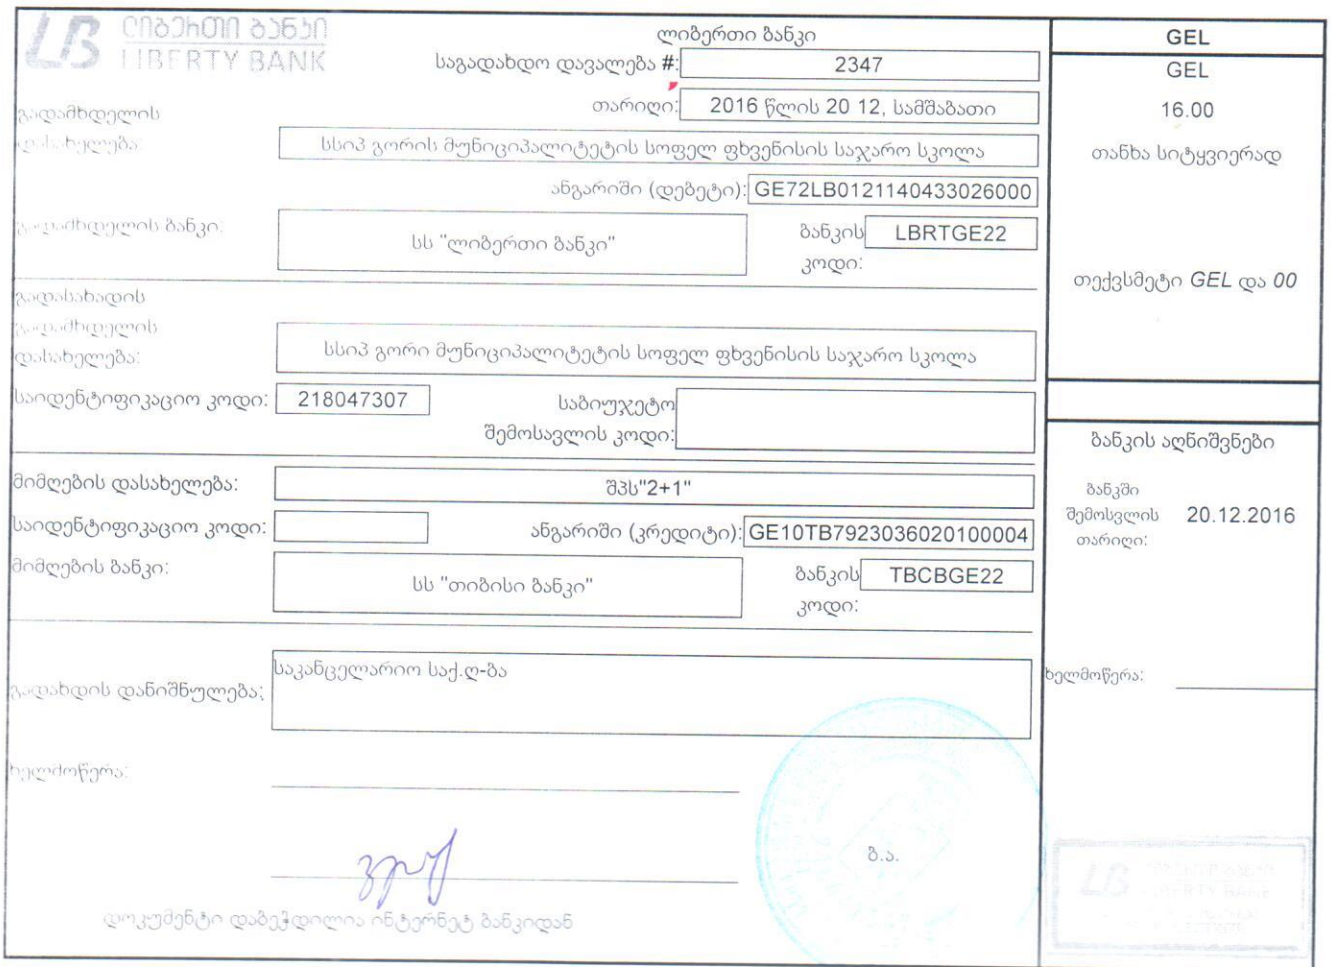 ლიბერთი ბანკი
LIBERTY BANK
ლიბერთი ბანკი
საგადახდო დავალება #: 2347
თარიღი: 2016 წლის 20 12, სამშაბათი
გადამხდელის
დასახელება: სსიპ გორის მუნიციპალიტეტის სოფელ ფხვენისის საჯარო სკოლა
ანგარიში (დებეტი): GE72LB0121140433026000
გადამხდელის ბანკი: სს "ლიბერთი ბანკი" ბანკის კოდი: LBRTGE22
გადასახადის
გადამხდელის
დასახელება: სსიპ გორი მუნიციპალიტეტის სოფელ ფხვენისის საჯარო სკოლა
საიდენტიფიკაციო კოდი: 218047307 საბიუჯეტო
შემოსავლის კოდი:
მიმღების დასახელება: შპს"2+1"
საიდენტიფიკაციო კოდი: ანგარიში (კრედიტი): GE10TB7923036020100004
მიმღების ბანკი: სს "თიბისი ბანკი" ბანკის კოდი: TBCBGE22
გადახდის დანიშნულება: საკანცელარიო საქ.ღ-ბა
ხელმოწერა:
ბ.ა.
დოკუმენტი დაბეჭდილია ინტერნეტ ბანკიდან
GEL
GEL
16.00
თანხა სიტყვიერად
თექვსმეტი GEL და 00
ბანკის აღნიშვნები
ბანკში
შემოსვლის 20.12.2016
თარიღი:
ხელმოწერა:
LIBERTY BANK